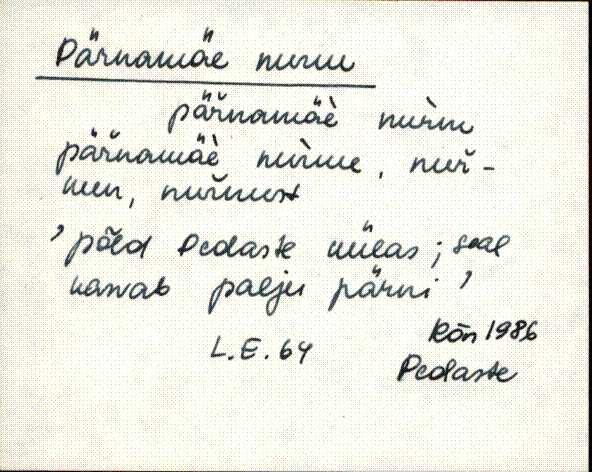 Pärnamäe nurm
pär̆namäè nùrm
pär̆namäè nùrme, nur̆-
men, nur̆mest
’põld Pedaste külas; seal
kasvab palju pärni’
Kõn 1986
L.E. 64
Pedaste